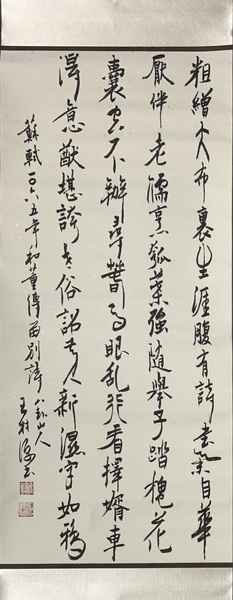 粗缯大布裹生涯腹有诗书气自华
厌伴老儒烹瓠叶强随举子踏槐花
囊空不办寻春马眼乱行看择婿车
得意犹堪夸世俗诏黄人新湿字如鸦
苏轼一〇六五年和董传留别诗